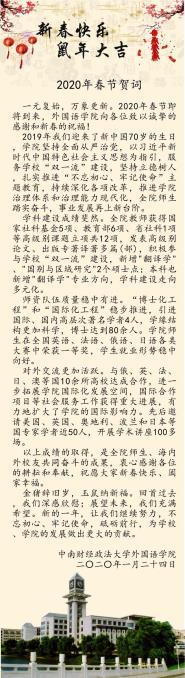 新春快乐
鼠年大吉
2020年春节贺词
一元复始，万象更新。2020年春节即
将到来，外国语学院向各位致以诚挚的
感谢和新春的祝福！
2019年我们迎来了新中国70岁的生日
，学院坚持全面从严治党，以习近平新
时代中国特色社会主义思想为指引，服
务学校“双一流”建设，坚持立德树人
，扎实推进“不忘初心、牢记使命”主
题教育，持续深化各项改革，推进学院
治理体系和治理能力现代化，全院师生
踏实奋进，事业发展再上新台阶。
学科建设成绩斐然。全院教师获得国
家社科基金5项、教育部6项、省社科1项
等高级别课题立项共12项，发表高级别
论文、出版专著译著多篇（部），积极参
与学校“双一流”建设，新增“翻译学”
、“国别与区域研究”2个硕士点；本科也
新增“翻译学”专业方向，学科建设走向
多元化。
师资队伍质量稳中有进。“博士化工
程”和“国际化工程”稳步推进，引进
国际、国内高层次著名学者4人，学缘结
构更加科学，博士达到80余人。学院师
生在全国英语、法语、俄语、日语各类
大赛中荣获一等奖，学生就业形势稳中
向好。
对外交流更加活跃。与俄、英、法、
日、澳等国10余所高校达成合作，进一
步拓展学院国际化发展空间，国际合作
项目等社会服务工作获得重大进展，有
力地扩大了学院的国际影响力。先后邀
请美国、英国、奥地利、波兰和日本等
国专家学者近50人，开展学术讲座100多
场。
以上成绩的取得，是全院师生、海内
外校友共同奋斗的成果，衷心感谢各位
的耕耘和奉献，祝愿大家新春快乐、阖
家幸福。
金猪辞旧岁，玉鼠纳新福。回首过去
，我们深感欣慰；展望未来，我们充满
希望。新的一年，让我们继续努力，不
忘初心、牢记使命，砥砺前行，为学校
、学院的发展做出更大的贡献。
中南财经政法大学外国语学院
二〇二〇年一月二十四日